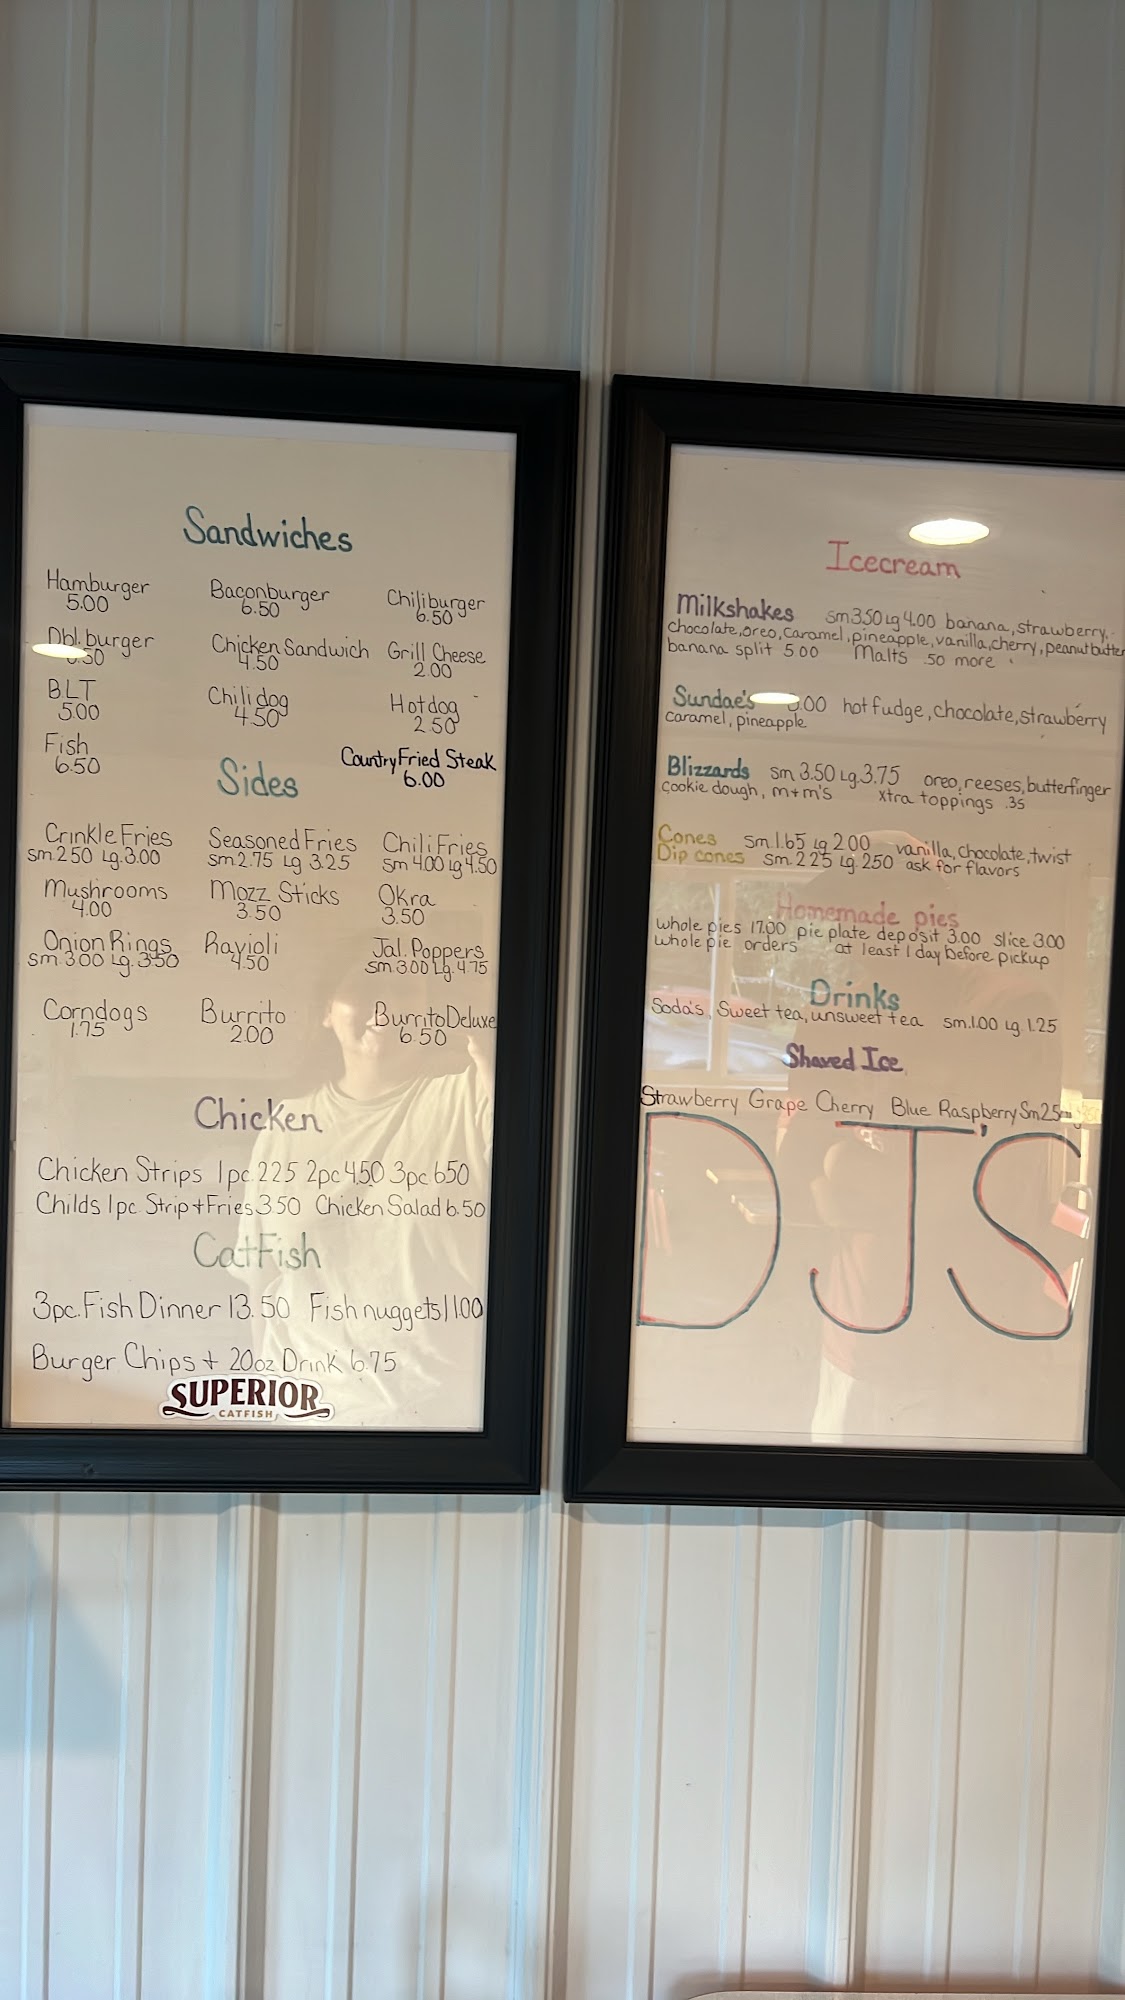 Sandwiches
Hamburger Baconburger Chiliburger
5.00 6.50 6.50
Dbl. burger Chicken Sandwich Grill Cheese
4.50 2.00
BLT Chili dog Hotdog
5.00 4.50 2.50
Fish Country Fried Steak
6.50 6.00
Sides
Crinkle Fries Seasoned Fries Chili Fries
sm 2.50 Lg. 3.00 sm 2.75 Lg 3.25 sm 4.00 Lg 4.50
Mushrooms Mozz Sticks Okra
4.00 3.50 3.50
Onion Rings Ravioli Jal. Poppers
sm. 3.00 Lg. 3.50 4.50 sm 3.00 Lg. 4.75
Corndogs Burrito Burrito Deluxe
1.75 2.00 6.50
Chicken
Chicken Strips 1pc. 2.25 2pc 4.50 3pc. 6.50
Childs 1pc. Strip + Fries 3.50 Chicken Salad 6.50
CatFish
3pc. Fish Dinner 13.50 Fish nuggets 11.00
Burger Chips + 20oz Drink 6.75
SUPERIOR
CATFISH
Icecream
Milkshakes sm 3.50 Lg 4.00 banana, strawberry,
chocolate, oreo, caramel, pineapple, vanilla, cherry, peanutbutter
banana split 5.00 Malts .50 more
Sundae's hot fudge, chocolate, strawberry
caramel, pineapple
Blizzards sm 3.50 Lg. 3.75 oreo, reeses, butterfinger
cookie dough, m+m's xtra toppings .35
Cones sm. 1.65 Lg 2.00 vanilla, chocolate, twist
Dip cones sm. 2.25 Lg. 2.50 ask for flavors
Homemade pies
whole pies 17.00 pie plate deposit 3.00 slice 3.00
whole pie orders at least 1 day before pickup
Drinks
Soda's, Sweet tea, unsweet tea sm. 1.00 Lg 1.25
Shaved Ice
Strawberry Grape Cherry Blue Raspberry Sm
DJ'S